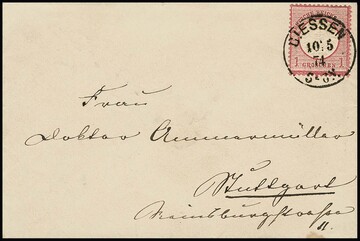 DIESSEN
10/5
74
1 GROSCHEN 1
Frau
Doktor Ammermüller
Stuttgart
Reinsburgstrasse
11.